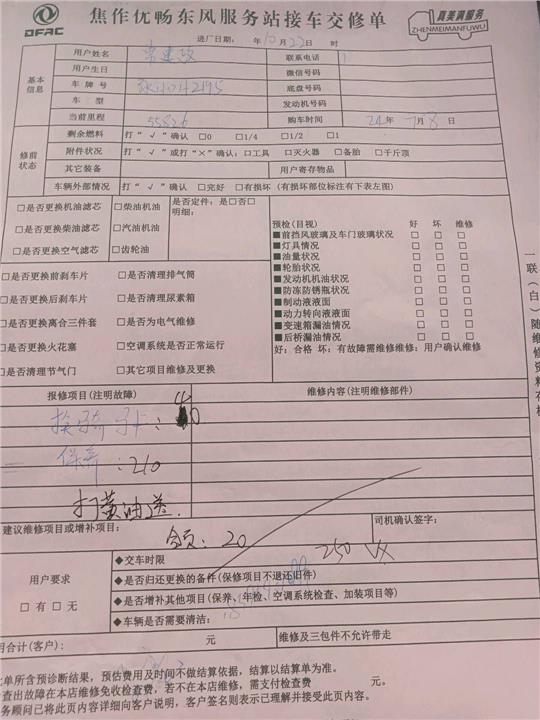 DFAC
焦作优畅东风服务站接车交修单
真美满服务
ZHENMEIMANFUWU
进厂日期： 年10月22日 时
基本信息
用户姓名
联系电话
用户生日
微信号码
车牌号
底盘号码
车型
发动机号码
当前里程 55826
购车时间 24年 7月8日
修前状态
剩余燃料 打“√”确认 □0 □1/4 □1/2 □1
附件状况 打“√”或打“×”确认：□工具 □灭火器 □备胎 □千斤顶
其它装备
用户寄存物品
车辆外部情况 打“√”确认 □完好 □有损坏（有损坏部位标注有下表左图）
□是否更换机油滤芯 □柴油机油
□是否定件：是□否□
明细：
□是否更换柴油滤芯 □汽油机油
□是否更换空气滤芯 □齿轮油
预检(目视) 好 坏 维修
■前挡风玻璃及车门玻璃状况 □ □ □
■灯具情况 □ □ □
■油量状况 □ □ □
■轮胎状况 □ □ □
■发动机机油状况 □ □ □
■防冻防锈瓶状况 □ □ □
■制动液液面 □ □ □
■动力转向液液面 □ □ □
■变速箱漏油情况 □ □ □
■后桥漏油情况 □ □ □
好：合格 坏：有故障需维修维修：用户确认维修
□是否更换前刹车片 □是否清理排气筒
□是否更换后刹车片 □是否清理尿素箱
□是否更换离合三件套 □是否为电气维修
□是否更换火花塞 □空调系统是否正常运行
□是否清理节气门 □其它项目维修及更换
一联（白）随维修资料存档
报修项目(注明故障)
维修内容(注明维修部件)
保养：210
打黄油送
建议维修项目或增补项目：
司机确认签字：
20
250 VX
用户要求
□有□无
◆交车时限
◆是否归还更换的备件(保修项目不退还旧件)
◆是否增补其他项目(保养、年检、空调系统检查、加装项目等)
◆车辆是否需要清洁：
用合计(客户)： 元
维修及三包件不允许带走
此单所含预诊断结果，预估费用及时间不做结算依据，结算以结算单为准。
查出故障在本店维修免收检查费，若不在本店维修，需支付检查费 元。
务顾问已将此页内容详细向客户说明，客户签名则表示已理解并接受此页内容。